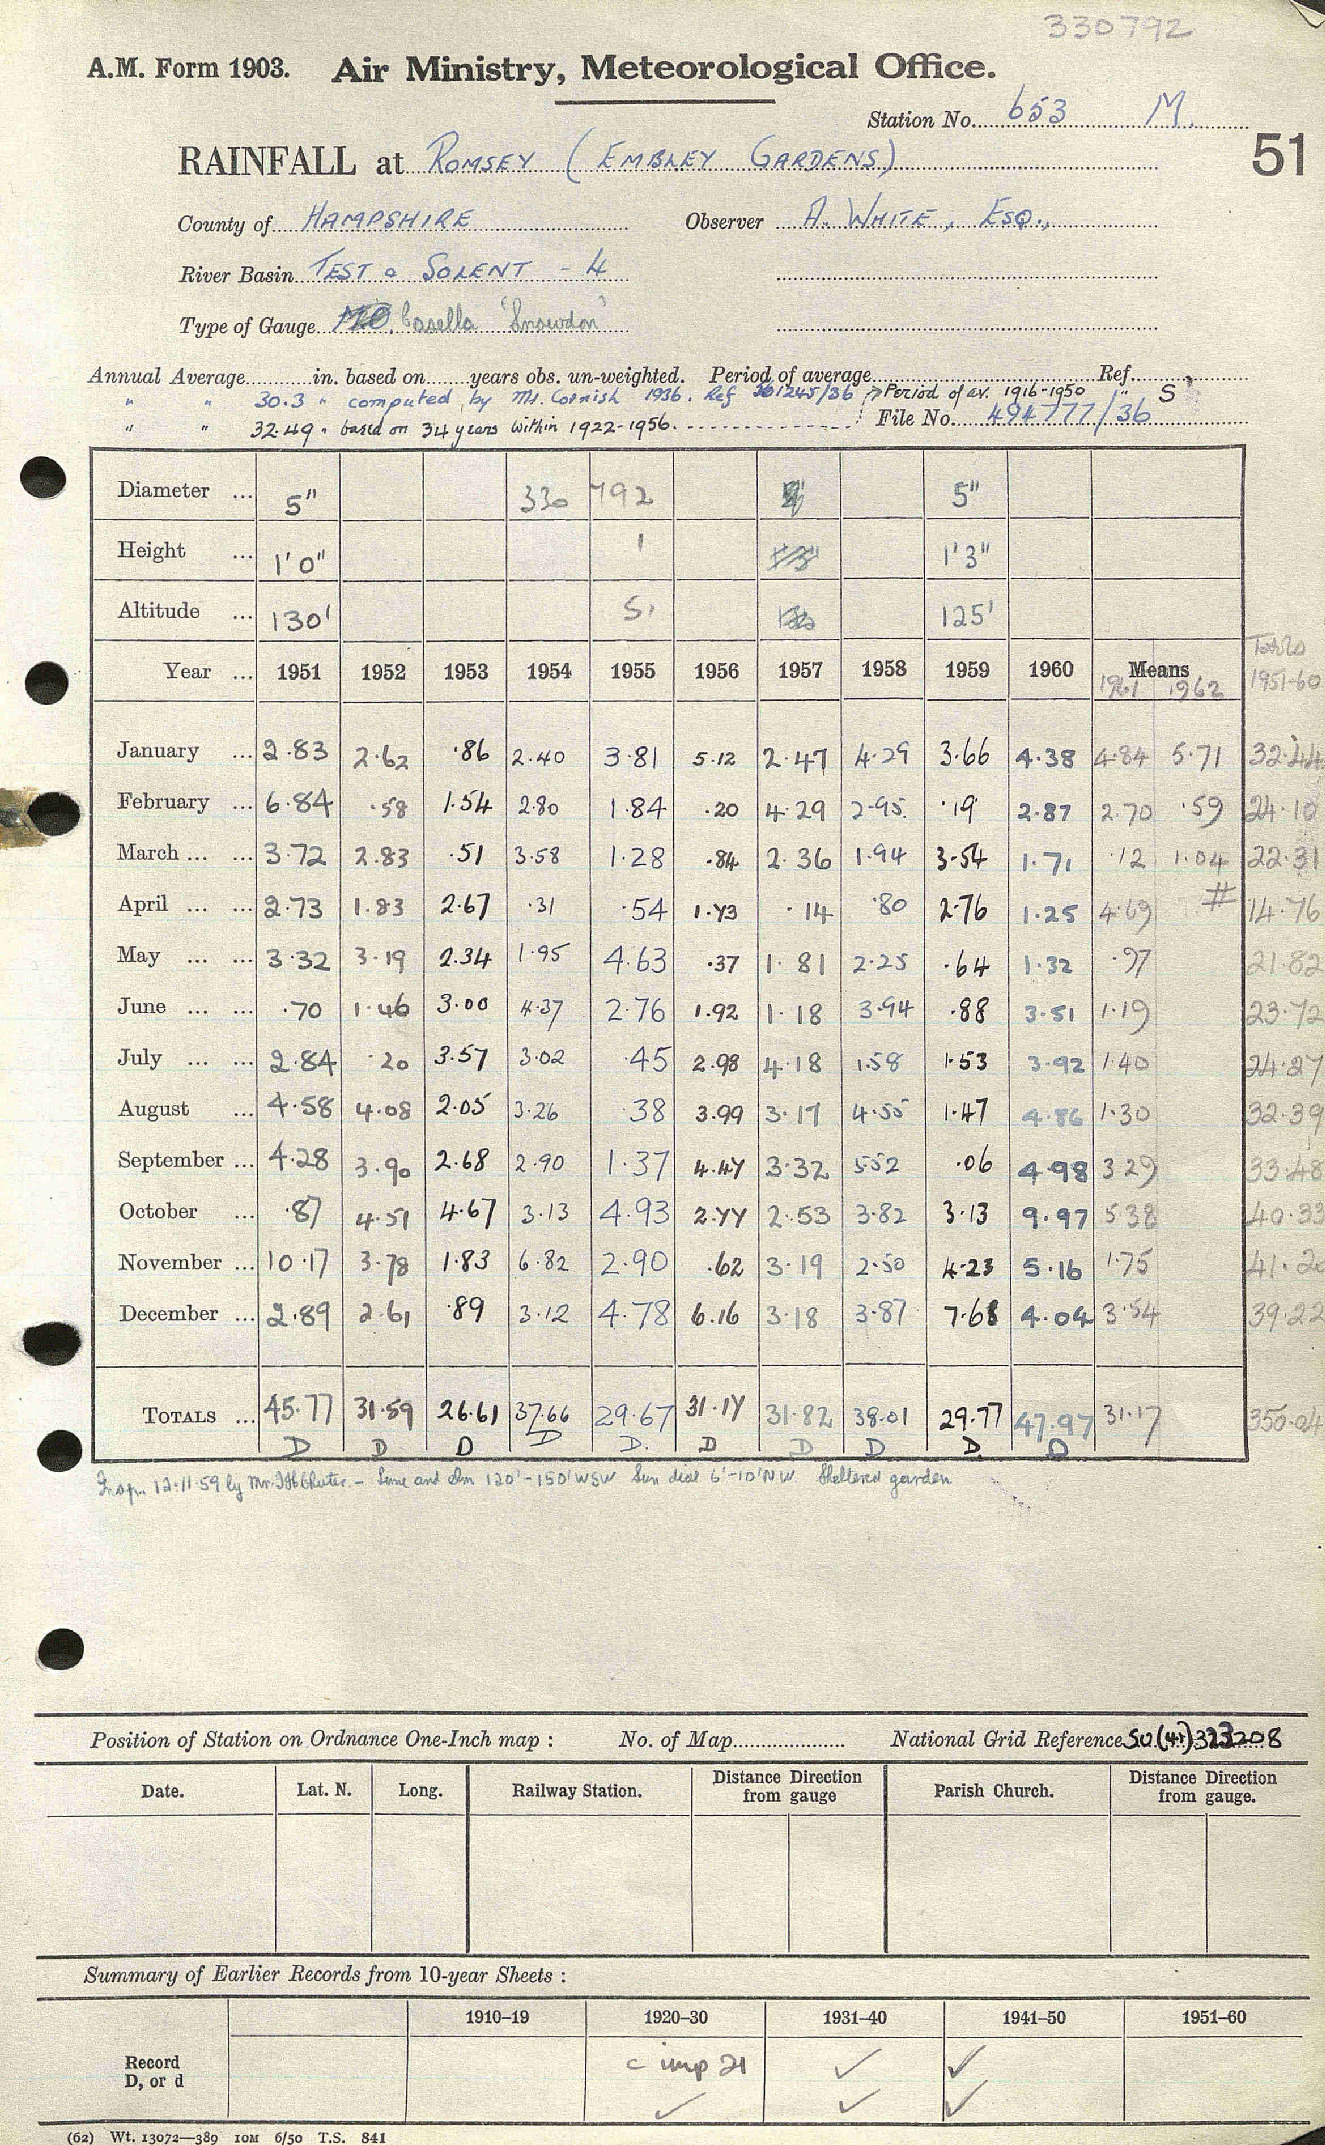 330792
A.M. Form 1903. Air Ministry, Meteorological Office.
Station No. 653 M.
51
RAINFALL at ROMSEY (EMBLEY GARDENS)
County of HAMPSHIRE Observer A. WHITE, ESQ.,
River Basin TEST & SOLENT - 4
Type of Gauge Casella 'Snowdon'
Annual Average in. based on years obs. un-weighted. Period of average Ref.
" " 30.3 " computed by Mr. Cornish 1936. Ref 361245/36 → Period of av. 1916-1950 " S
" " 32.49 " based on 34 years within 1922-1956. File No. 494777/36
Diameter ... 5" 330 792 5"
Height ... 1'0" 1 1'3"
Altitude ... 130' 5' 125'
Totals
Year ... 1951 1952 1953 1954 1955 1956 1957 1958 1959 1960 Means 1951-60
1961 1962
January ... 2.83 2.62 .86 2.40 3.81 5.12 2.47 4.29 3.66 4.38 4.84 5.71 32.44
February ... 6.84 .58 1.54 2.80 1.84 .20 4.29 2.95 .19 2.87 2.70 .59 24.10
March ... ... 3.72 2.83 .51 3.58 1.28 .84 2.36 1.94 3.54 1.71 .12 1.04 22.31
April ... ... 2.73 1.83 2.67 .31 .54 1.73 .14 .80 2.76 1.25 4.69 # 14.76
May ... ... 3.32 3.19 2.34 1.95 4.63 .37 1.81 2.25 .64 1.32 .97 21.82
June ... ... .70 1.46 3.00 4.37 2.76 1.92 1.18 3.94 .88 3.51 1.19 23.72
July ... ... 2.84 .20 3.57 3.02 .45 2.98 4.18 1.58 1.53 3.92 1.40 24.27
August ... 4.58 4.08 2.05 3.26 .38 3.99 3.17 4.55 1.47 4.86 1.30 32.39
September ... 4.28 3.90 2.68 2.90 1.37 4.47 3.32 5.52 .06 4.98 3.29 33.48
October ... .87 4.51 4.67 3.13 4.93 2.77 2.53 3.82 3.13 9.97 5.38 40.33
November ... 10.17 3.78 1.83 6.82 2.90 .62 3.19 2.50 4.23 5.16 1.75 41.20
December ... 2.89 2.61 .89 3.12 4.78 6.16 3.18 3.87 7.68 4.04 3.54 39.22
TOTALS ... 45.77 31.59 26.61 37.66 29.67 31.17 31.82 38.01 29.77 47.97 31.17 350.04
D D D D D. D D D D D
Insp. 12.11.59 by Mr. – Lime and Elm 120'-150' WSW Sun dial 6'-10' NW. Sheltered garden
Position of Station on Ordnance One-Inch map : No. of Map National Grid Reference SU(41)323208
Date. Lat. N. Long. Railway Station. Distance Direction from gauge Parish Church. Distance Direction from gauge.
Summary of Earlier Records from 10-year Sheets :
1910–19 1920–30 1931–40 1941–50 1951–60
Record c imp 21 ✓ ✓
D, or d ✓ ✓ ✓
(62) Wt. 13072—389 10M 6/50 T.S. 841